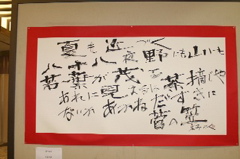 夏も近づく
八十八夜
野にも山にも
若葉が茂る
あれに見えるは
茶摘じゃ
ないか
あかねだすきに
菅の笠